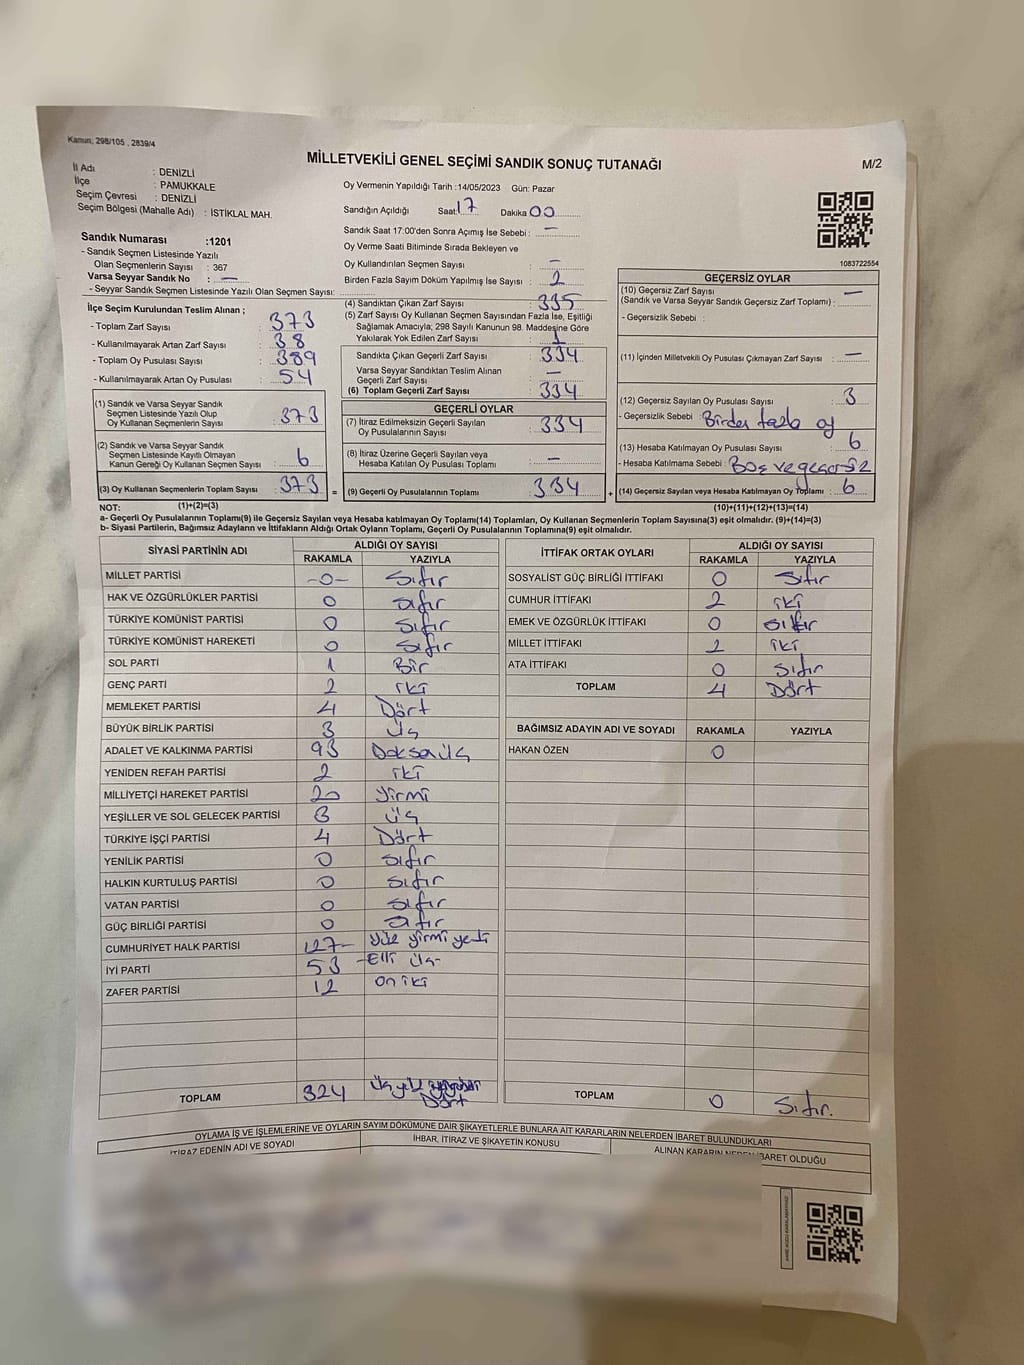 Kanun; 298/105 , 2839/4
MİLLETVEKİLİ GENEL SEÇİMİ SANDIK SONUÇ TUTANAĞI
M/2
İl Adı : DENİZLİ
İlçe : PAMUKKALE
Seçim Çevresi : DENİZLİ
Seçim Bölgesi (Mahalle Adı) : İSTİKLAL MAH.
Sandık Numarası :1201
- Sandık Seçmen Listesinde Yazılı
Olan Seçmenlerin Sayısı : 367
Varsa Seyyar Sandık No : —
- Seyyar Sandık Seçmen Listesinde Yazılı Olan Seçmen Sayısı:
Oy Vermenin Yapıldığı Tarih :14/05/2023 Gün: Pazar
Sandığın Açıldığı Saat 17 Dakika 00
Sandık Saat 17:00'den Sonra Açımış İse Sebebi : —
Oy Verme Saati Bitiminde Sırada Bekleyen ve
Oy Kullandırılan Seçmen Sayısı : —
Birden Fazla Sayım Döküm Yapılmış İse Sayısı : 2
1083722554
İlçe Seçim Kurulundan Teslim Alınan ;
- Toplam Zarf Sayısı : 373
- Kullanılmayarak Artan Zarf Sayısı : 38
- Toplam Oy Pusulası Sayısı : 389
- Kullanılmayarak Artan Oy Pusulası : 54
(1) Sandık ve Varsa Seyyar Sandık
Seçmen Listesinde Yazılı Olup
Oy Kullanan Seçmenlerin Sayısı : 373
(2) Sandık ve Varsa Seyyar Sandık
Seçmen Listesinde Kayıtlı Olmayan
Kanun Gereği Oy Kullanan Seçmen Sayısı : 6
(3) Oy Kullanan Seçmenlerin Toplam Sayısı : 373
(4) Sandıktan Çıkan Zarf Sayısı : 335
(5) Zarf Sayısı Oy Kullanan Seçmen Sayısından Fazla İse, Eşitliği
Sağlamak Amacıyla; 298 Sayılı Kanunun 98. Maddesine Göre
Yakılarak Yok Edilen Zarf Sayısı : 1
Sandıkta Çıkan Geçerli Zarf Sayısı : 334
Varsa Seyyar Sandıktan Teslim Alınan
Geçerli Zarf Sayısı : —
(6) Toplam Geçerli Zarf Sayısı : 334
GEÇERLİ OYLAR
(7) İtiraz Edilmeksizin Geçerli Sayılan
Oy Pusulalarının Sayısı : 334
(8) İtiraz Üzerine Geçerli Sayılan veya
Hesaba Katılan Oy Pusulaları Toplamı : —
= (9) Geçerli Oy Pusulalarının Toplamı : 334
GEÇERSİZ OYLAR
(10) Geçersiz Zarf Sayısı
(Sandık ve Varsa Seyyar Sandık Geçersiz Zarf Toplamı) : —
- Geçersizlik Sebebi :
(11) İçinden Milletvekili Oy Pusulası Çıkmayan Zarf Sayısı : —
(12) Geçersiz Sayılan Oy Pusulası Sayısı : 3
- Geçersizlik Sebebi : Birden fazla oy
(13) Hesaba Katılmayan Oy Pusulası Sayısı : 6
- Hesaba Katılmama Sebebi : Boş ve geçersiz
+ (14) Geçersiz Sayılan veya Hesaba Katılmayan Oy Toplamı : 6
NOT: (1)+(2)=(3) (10)+(11)+(12)+(13)=(14)
a- Geçerli Oy Pusulalarının Toplamı(9) ile Geçersiz Sayılan veya Hesaba katılmayan Oy Toplamı(14) Toplamları, Oy Kullanan Seçmenlerin Toplam Sayısına(3) eşit olmalıdır. (9)+(14)=(3)
b- Siyasi Partilerin, Bağımsız Adayların ve İttifakların Aldığı Ortak Oyların Toplamı, Geçerli Oy Pusulalarının Toplamına(9) eşit olmalıdır.
SİYASİ PARTİNİN ADI ALDIĞI OY SAYISI
RAKAMLA YAZIYLA
MİLLET PARTİSİ -0- Sıfır
HAK VE ÖZGÜRLÜKLER PARTİSİ 0 sıfır
TÜRKİYE KOMÜNİST PARTİSİ 0 Sıfır
TÜRKİYE KOMÜNİST HAREKETİ 0 Sıfır
SOL PARTİ 1 Bir
GENÇ PARTİ 2 iki
MEMLEKET PARTİSİ 4 Dört
BÜYÜK BİRLİK PARTİSİ 3 üç
ADALET VE KALKINMA PARTİSİ 93 Doksanüç
YENİDEN REFAH PARTİSİ 2 iki
MİLLİYETÇİ HAREKET PARTİSİ 20 yirmi
YEŞİLLER VE SOL GELECEK PARTİSİ 3 üç
TÜRKİYE İŞÇİ PARTİSİ 4 Dört
YENİLİK PARTİSİ 0 sıfır
HALKIN KURTULUŞ PARTİSİ 0 sıfır
VATAN PARTİSİ 0 sıfır
GÜÇ BİRLİĞİ PARTİSİ 0 sıfır
CUMHURİYET HALK PARTİSİ 127- yüz yirmi yedi
İYİ PARTİ 53 -Elli üç-
ZAFER PARTİSİ 12 on iki
TOPLAM 324 üç yüz Dört
İTTİFAK ORTAK OYLARI ALDIĞI OY SAYISI
RAKAMLA YAZIYLA
SOSYALİST GÜÇ BİRLİĞİ İTTİFAKI 0 Sıfır
CUMHUR İTTİFAKI 2 iki
EMEK VE ÖZGÜRLÜK İTTİFAKI 0 sıfır
MİLLET İTTİFAKI 2 iki
ATA İTTİFAKI 0 sıfır
TOPLAM 4 Dört
BAĞIMSIZ ADAYIN ADI VE SOYADI RAKAMLA YAZIYLA
HAKAN ÖZEN 0
TOPLAM 0 Sıfır.
OYLAMA İŞ VE İŞLEMLERİNE VE OYLARIN SAYIM DÖKÜMÜNE DAİR ŞİKAYETLERLE BUNLARA AİT KARARLARIN NELERDEN İBARET BULUNDUKLARI
İTİRAZ EDENİN ADI VE SOYADI İHBAR, İTİRAZ VE ŞİKAYETİN KONUSU ALINAN KARARIN NEDEN İBARET OLDUĞU